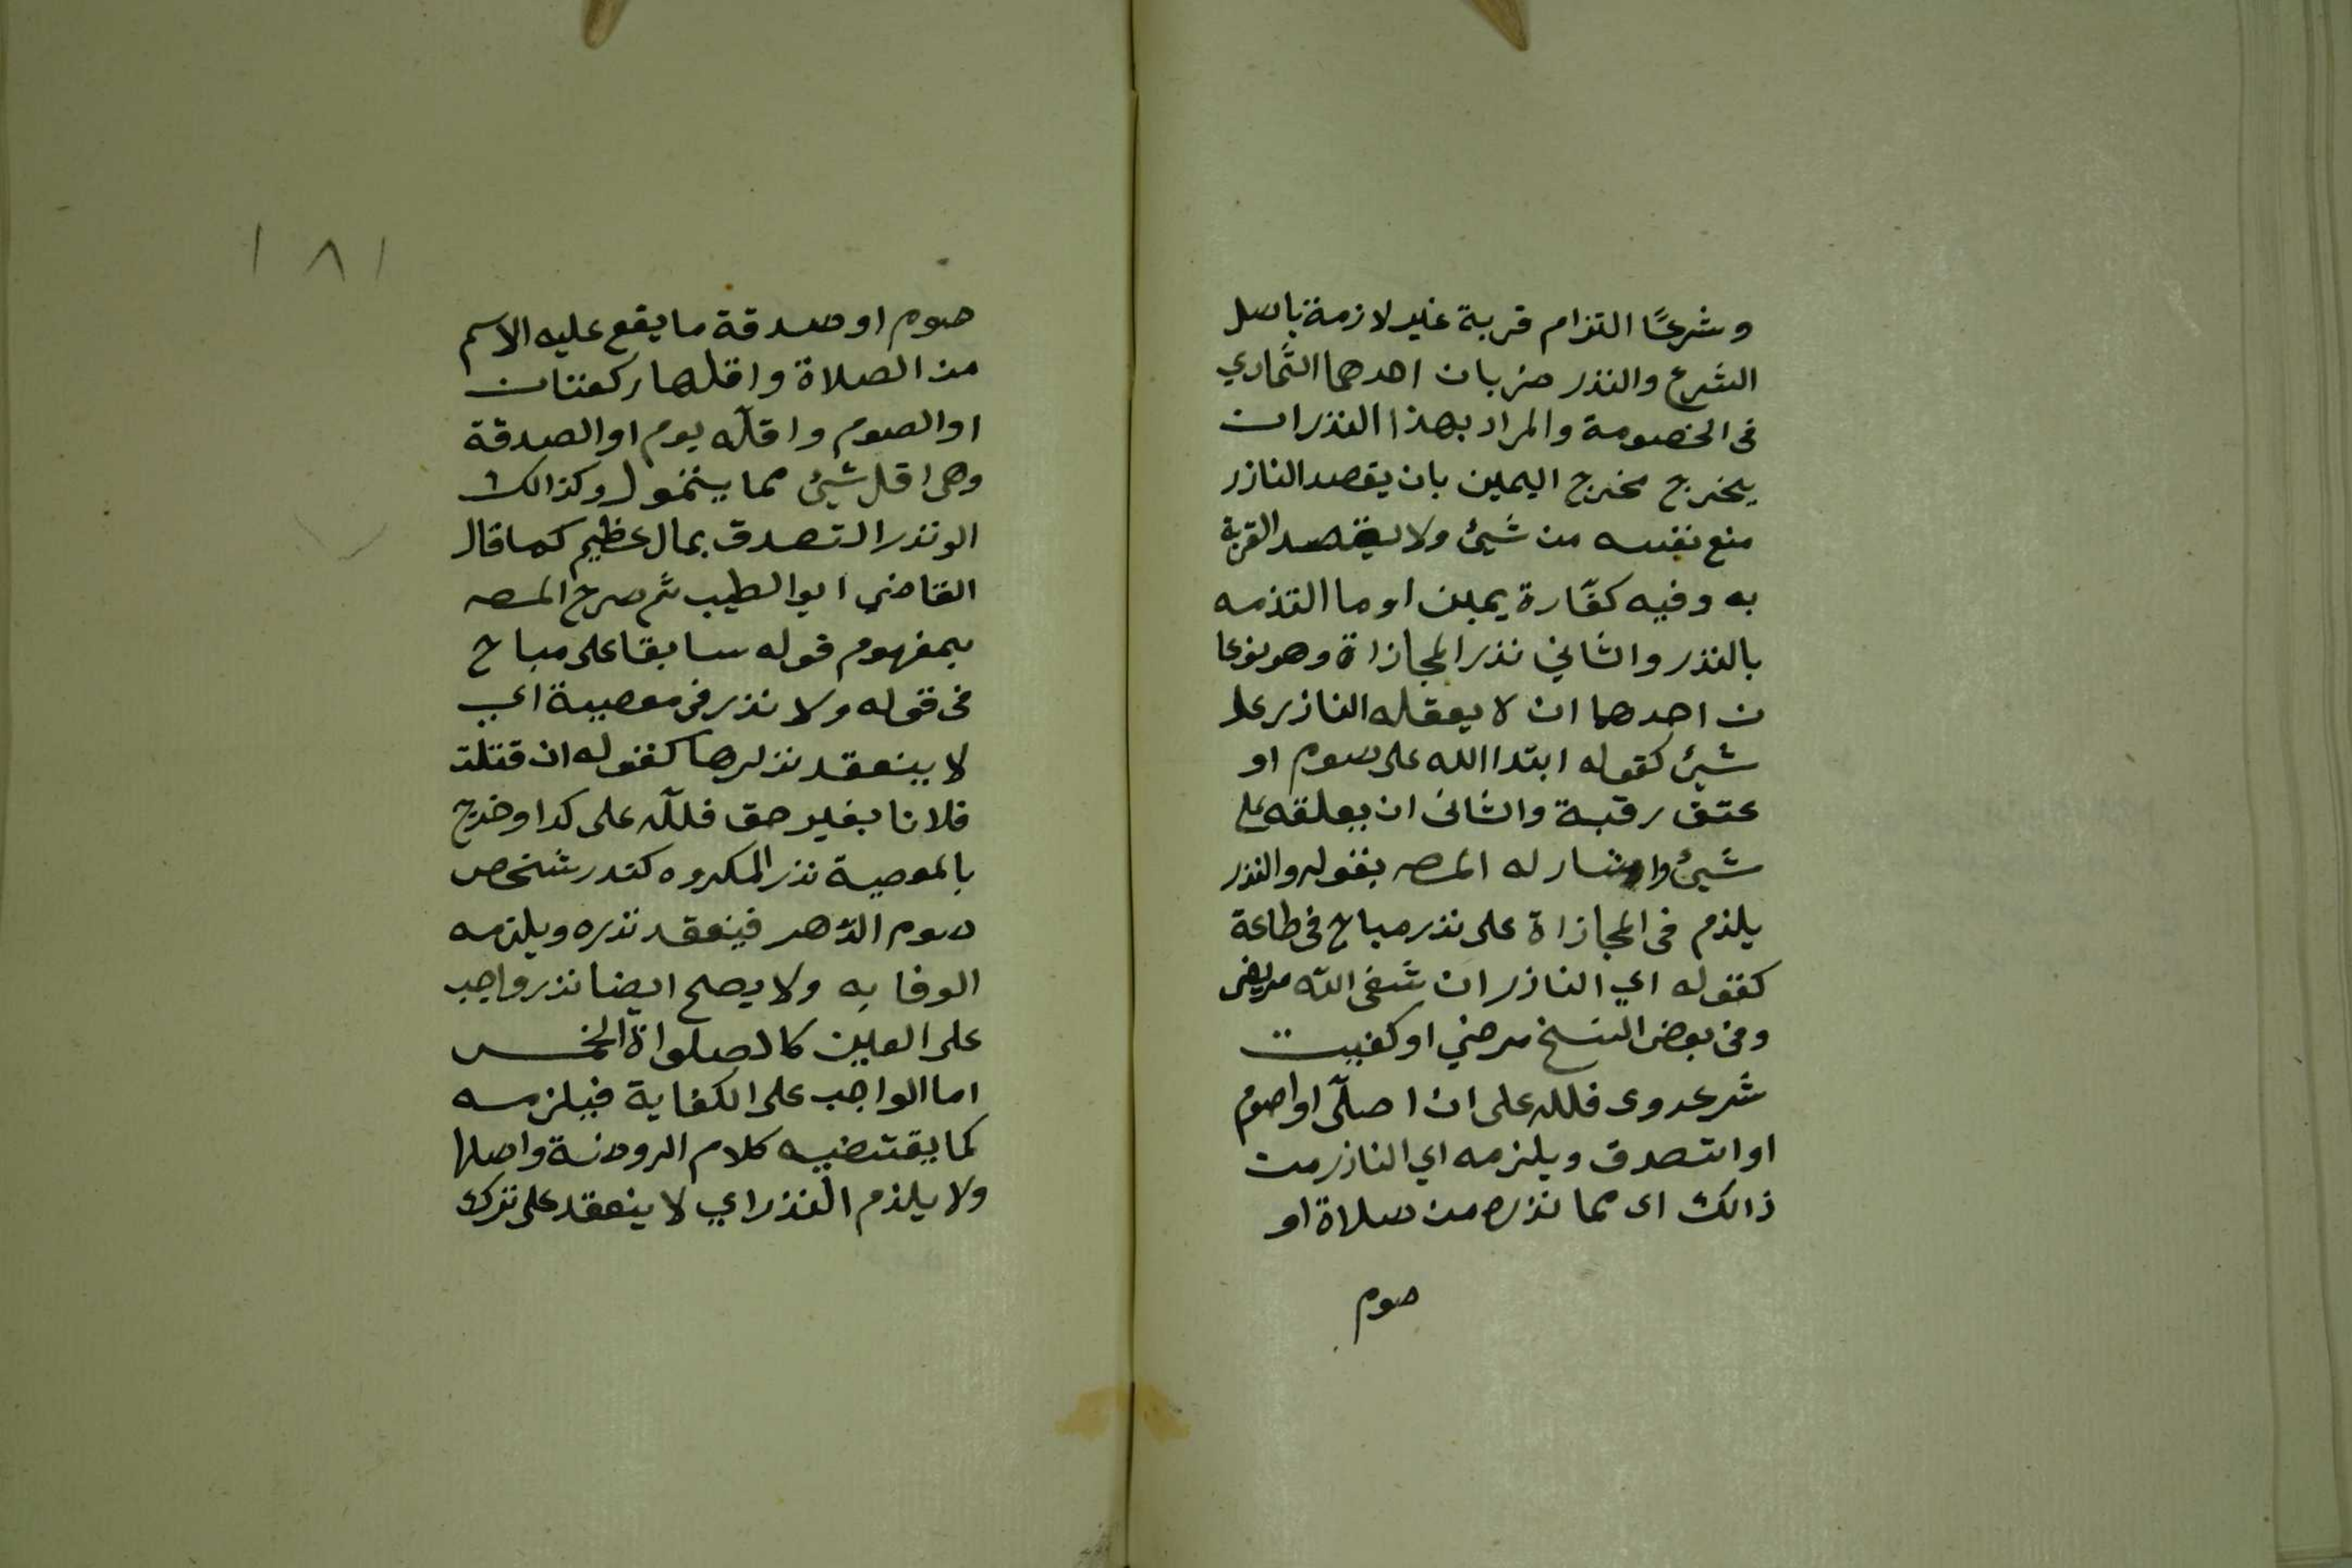 وشرعًا التزام قربة غير لازمة باصل
الشرع والنذر ضربان احدهما التمادي
فى الخصومة والمراد بهذا النذران
يخرج مخرج اليمين بان يقصد الناذر
منع نفسه من شيئ ولا يقصد القربة
به وفيه كفّارة يمين او ما التذمه
بالنذر والثاني نذر المجازاة وهو نوعا
ن احدهما ان لا يعقله الناذر على
شيئ كقوله ابتدا الله على صوم او
عتق رقبة والثانى ان يعلقه على
شيئ واشار له المصه بقوله والنذر
يلذم فى المجازاة على نذر مباح فى طاعة
كقوله اي الناذر ان شفى اللّه مريضى
وفى بعض النسخ مرضي او كفيت
شر عدوى فلله على ان اصلّى او اصوم
او اتصدق ويلزمه اي الناذر من
ذالك اى مما نذره من صلاة او
صوم
١٨١
صوم او صدقة ما يقع عليه الاسم
من الصلاة واقلها ركعتان
او الصوم واقلّه يوم او الصدقة
وهى اقل شيئ مما يتمول وكذالك
الونذر التصدق بمال عظيم كما قال
القاضي ابوا لطيب ثم صرح المصه
بمفهوم قوله سابقا على مباح
فى قوله ولا نذر فى معصية اي
لا ينعقد نذرها كقوله ان قتلت
فلانا بغير حق فللّه على كدا وخرج
بالمعصية نذر المكروه كندر شخص
صوم الدّهر فينعقد نذره ويلزمه
الوفا به ولا يصح ايضا نذر واجب
على العين كالصلواة الخمس
اما الواجب على الكفاية فيلزمه
كما يقتضيه كلام الروضة واصلها
ولا يلذم النذر اي لا ينعقد على ترك